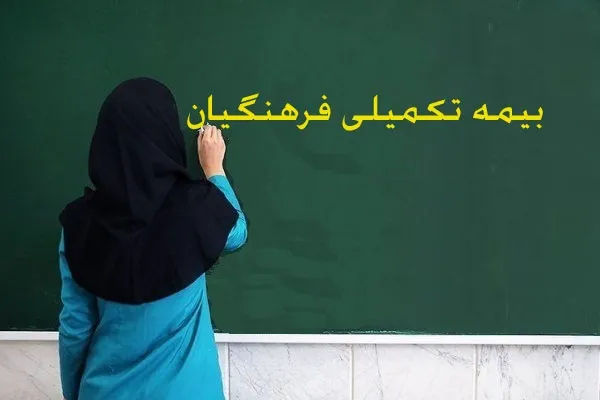 بیمه تکمیلی فرهنگیان